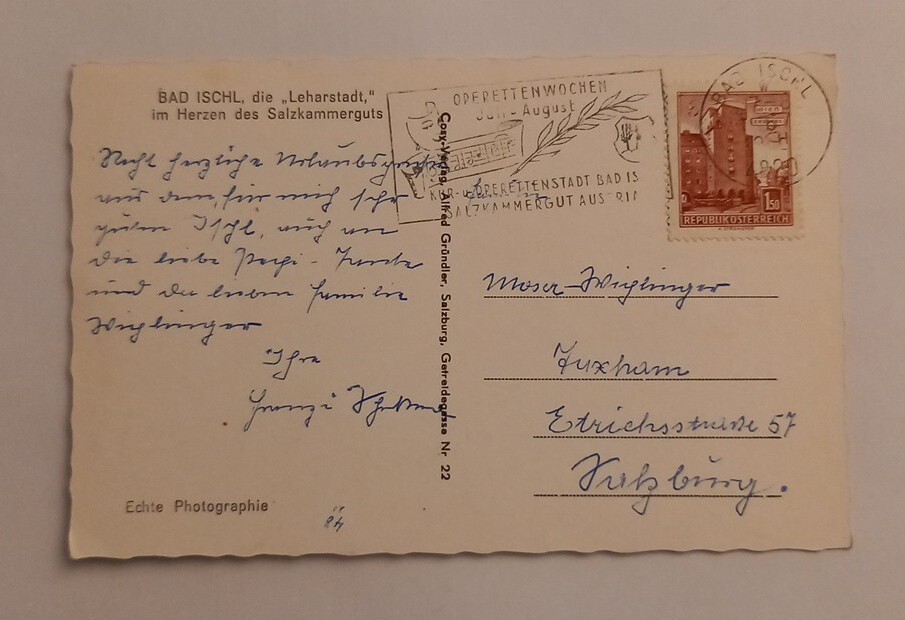 BAD ISCHL, die „Leharstadt,"
im Herzen des Salzkammerguts
Recht herzliche Urlaubsgrüße
aus dem, für mich sehr
guten Ischl, auch an
die liebe Pepi-Tante
und die lieben Familie
Wichlinger
Ihre
Franzi
Echte Photographie
Cosy-Verlag, Alfred Gründler, Salzburg, Getreidegasse Nr 22
OPERETTENWOCHEN
Juli-August
KUR-u. OPERETTENSTADT BAD IS
SALZKAMMERGUT AUSTRIA
BAD ISCHL
WIEN
1.50
REPUBLIK ÖSTERREICH
Moser-Wichlinger
Fuxham
Etrichsstraße 57
Salzburg.